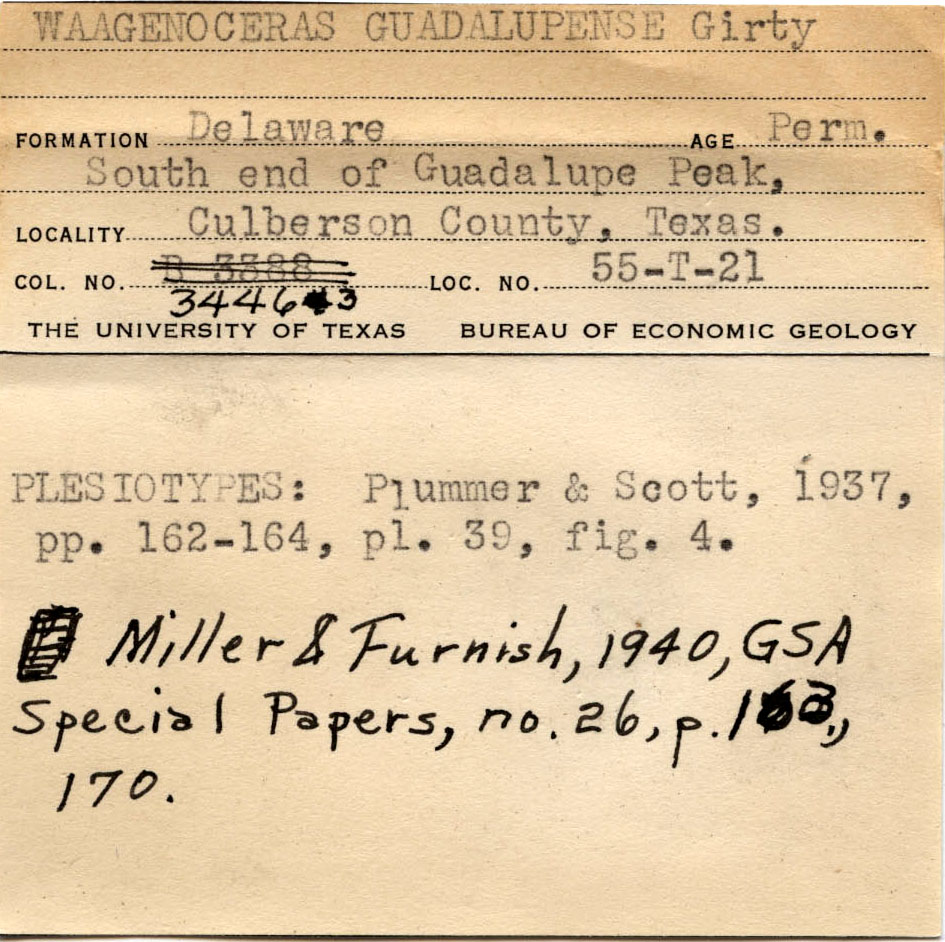 WAAGENOCERAS GUADALUPENSE Girty
FORMATION Delaware AGE Perm.
South end of Guadalupe Peak,
LOCALITY Culberson County, Texas.
COL. NO. B 3388 LOC. NO. 55-T-21
34463
THE UNIVERSITY OF TEXAS BUREAU OF ECONOMIC GEOLOGY
PLESIOTYPES: Plummer & Scott, 1937,
pp. 162-164, pl. 39, fig. 4.
Miller & Furnish, 1940, GSA
Special Papers, no. 26, p.
170.